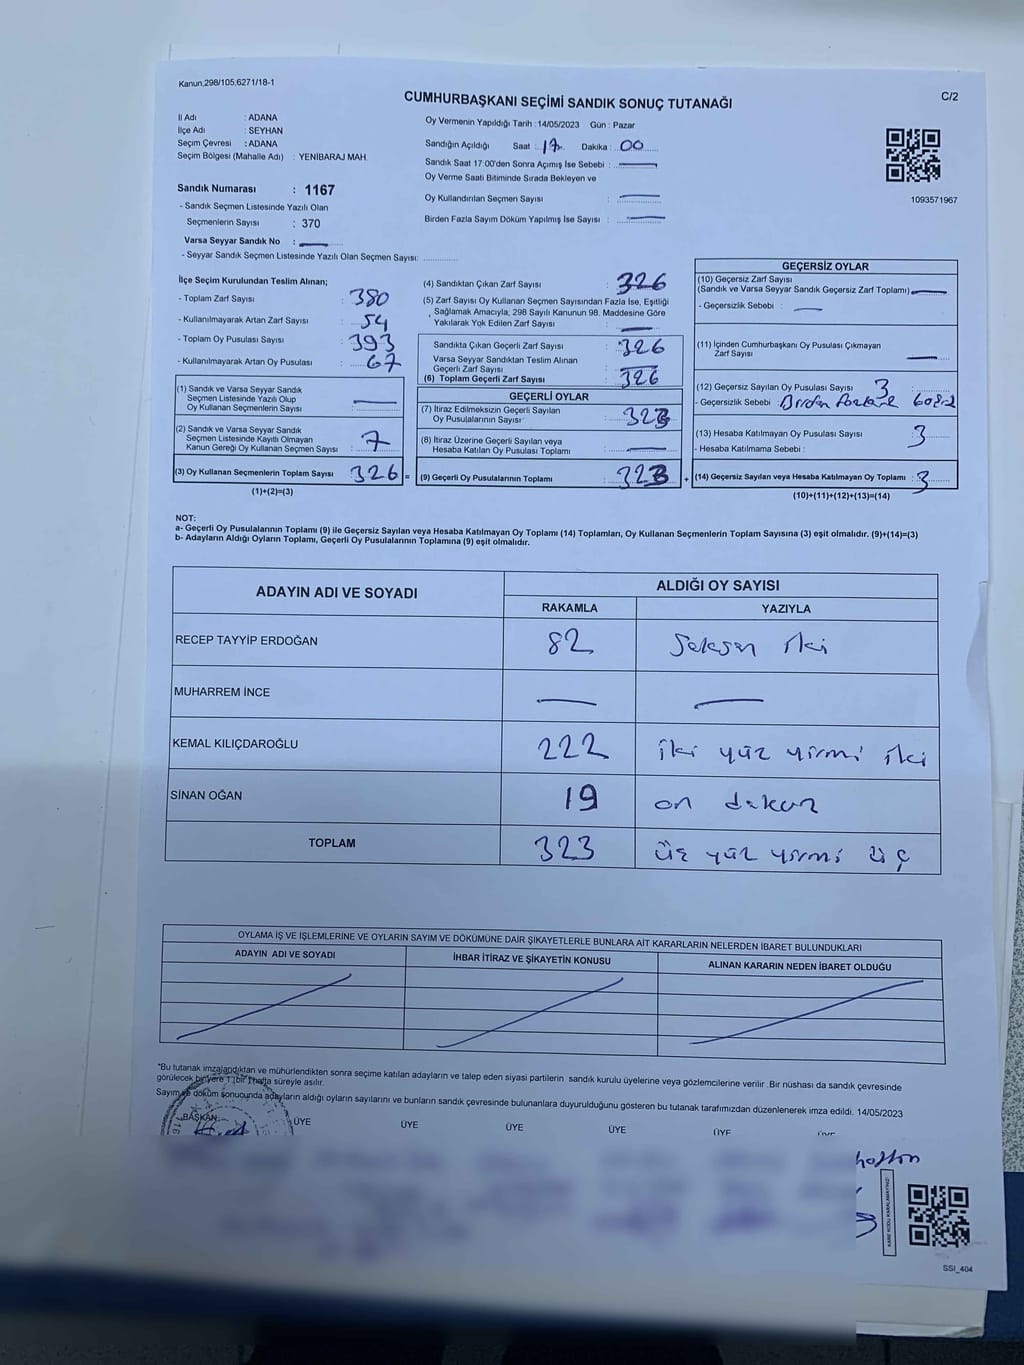 Kanun;298/105;6271/18-1
C/2
CUMHURBAŞKANI SEÇİMİ SANDIK SONUÇ TUTANAĞI
İl Adı : ADANA
İlçe Adı : SEYHAN
Seçim Çevresi : ADANA
Seçim Bölgesi (Mahalle Adı) : YENİBARAJ MAH.
Sandık Numarası : 1167
- Sandık Seçmen Listesinde Yazılı Olan
Seçmenlerin Sayısı : 370
Varsa Seyyar Sandık No :
- Seyyar Sandık Seçmen Listesinde Yazılı Olan Seçmen Sayısı:
Oy Vermenin Yapıldığı Tarih : 14/05/2023 Gün : Pazar
Sandığın Açıldığı Saat : 17 Dakika : 00
Sandık Saat 17:00'den Sonra Açımış İse Sebebi :
Oy Verme Saati Bitiminde Sırada Bekleyen ve
Oy Kullandırılan Seçmen Sayısı :
Birden Fazla Sayım Döküm Yapılmış İse Sayısı :
1093571967
İlçe Seçim Kurulundan Teslim Alınan;
- Toplam Zarf Sayısı : 380
- Kullanılmayarak Artan Zarf Sayısı : 54
- Toplam Oy Pusulası Sayısı : 393
- Kullanılmayarak Artan Oy Pusulası : 67
(1) Sandık ve Varsa Seyyar Sandık
Seçmen Listesinde Yazılı Olup
Oy Kullanan Seçmenlerin Sayısı :
(2) Sandık ve Varsa Seyyar Sandık
Seçmen Listesinde Kayıtlı Olmayan
Kanun Gereği Oy Kullanan Seçmen Sayısı : 7
(3) Oy Kullanan Seçmenlerin Toplam Sayısı : 326 =
(1)+(2)=(3)
(4) Sandıktan Çıkan Zarf Sayısı : 326
(5) Zarf Sayısı Oy Kullanan Seçmen Sayısından Fazla İse, Eşitliği
Sağlamak Amacıyla, 298 Sayılı Kanunun 98. Maddesine Göre
Yakılarak Yok Edilen Zarf Sayısı :
Sandıkta Çıkan Geçerli Zarf Sayısı : 326
Varsa Seyyar Sandıktan Teslim Alınan
Geçerli Zarf Sayısı :
(6) Toplam Geçerli Zarf Sayısı : 326
GEÇERLİ OYLAR
(7) İtiraz Edilmeksizin Geçerli Sayılan
Oy Pusulalarının Sayısı : 323
(8) İtiraz Üzerine Geçerli Sayılan veya
Hesaba Katılan Oy Pusulası Toplamı :
(9) Geçerli Oy Pusulalarının Toplamı : 323 +
GEÇERSİZ OYLAR
(10) Geçersiz Zarf Sayısı
(Sandık ve Varsa Seyyar Sandık Geçersiz Zarf Toplamı)
- Geçersizlik Sebebi :
(11) İçinden Cumhurbaşkanı Oy Pusulası Çıkmayan
Zarf Sayısı
(12) Geçersiz Sayılan Oy Pusulası Sayısı : 3
- Geçersizlik Sebebi : Birden
(13) Hesaba Katılmayan Oy Pusulası Sayısı : 3
- Hesaba Katılmama Sebebi :
(14) Geçersiz Sayılan veya Hesaba Katılmayan Oy Toplamı : 3
(10)+(11)+(12)+(13)=(14)
NOT:
a- Geçerli Oy Pusulalarının Toplamı (9) ile Geçersiz Sayılan veya Hesaba Katılmayan Oy Toplamı (14) Toplamları, Oy Kullanan Seçmenlerin Toplam Sayısına (3) eşit olmalıdır. (9)+(14)=(3)
b- Adayların Aldığı Oyların Toplamı, Geçerli Oy Pusulalarının Toplamına (9) eşit olmalıdır.
ADAYIN ADI VE SOYADI
ALDIĞI OY SAYISI
RAKAMLA YAZIYLA
RECEP TAYYİP ERDOĞAN 82 seksen iki
MUHARREM İNCE
KEMAL KILIÇDAROĞLU 222 iki yüz yirmi iki
SİNAN OĞAN 19 on dokuz
TOPLAM 323 üç yüz yirmi üç
OYLAMA İŞ VE İŞLEMLERİNE VE OYLARIN SAYIM VE DÖKÜMÜNE DAİR ŞİKAYETLERLE BUNLARA AİT KARARLARIN NELERDEN İBARET BULUNDUKLARI
ADAYIN ADI VE SOYADI İHBAR İTİRAZ VE ŞİKAYETİN KONUSU ALINAN KARARIN NEDEN İBARET OLDUĞU
*Bu tutanak imzalandıktan ve mühürlendikten sonra seçime katılan adayların ve talep eden siyasi partilerin sandık kurulu üyelerine veya gözlemcilerine verilir. Bir nüshası da sandık çevresinde
görülecek bir yere 1 (bir) hafta süreyle asılır.
Sayım ve döküm sonucunda adayların aldığı oyların sayılarını ve bunların sandık çevresinde bulunanlara duyurulduğunu gösteren bu tutanak tarafımızdan düzenlenerek imza edildi. 14/05/2023
BAŞKAN ÜYE ÜYE ÜYE ÜYE ÜYE
KARE KODU KARALAMAYINIZ!
SSI_404